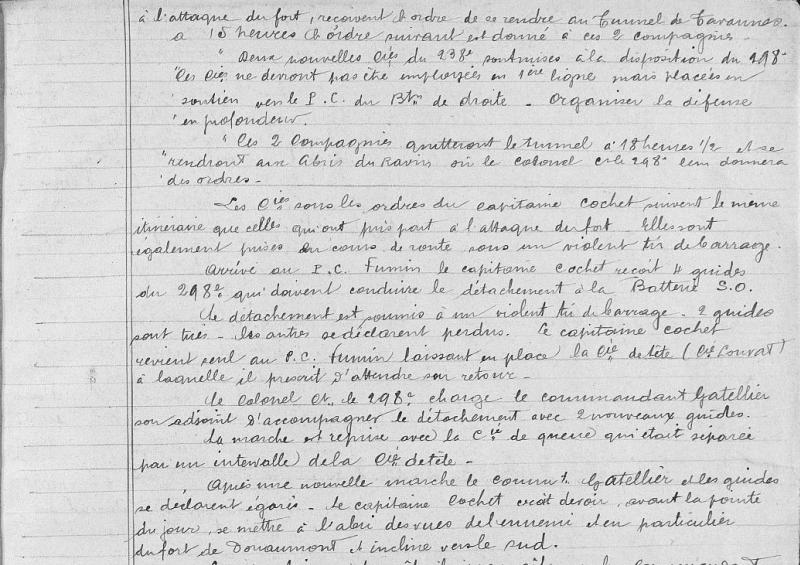 à l'attaque du fort, reçoivent l'ordre de se rendre au Tunnel de Tavannes.
a 15 heures l'ordre suivant est donné à ces 2 compagnies.
" Deux nouvelles Cies du 238e sont mises à la disposition du 298e
" Ces Cies ne devront pas être employées en 1ère ligne mais placées en
soutien vers le P.C. du Bton de droite - Organiser la défense
en profondeur.
" Ces 2 Compagnies quitteront le tunnel à 18 heures 1/2 et se
" rendront aux Abris du Ravin où le colonel Ct le 298e leur donnera
des ordres -
Les Cies sous les ordres du capitaine Cochet suivent le même
itinéraire que celles qui ont pris part à l'attaque du fort. Elles sont
également prises en cours de route sous un violent tir de barrage.
Arrivé au P.C. Fumin le capitaine Cochet reçoit 4 guides
du 298e qui doivent conduire le détachement à la Batterie S.O.
Le détachement est soumis à un violent tir de barrage. 2 guides
sont tués - les autres se déclarent perdus. Le capitaine Cochet
revient seul au P.C. Fumin laissant en place la Cie de tête (Cie Louvat)
à laquelle il prescrit d'attendre son retour -
Le Colonel Ct le 298e charge le commandant Gatellier
son adjoint d'accompagner le détachement avec 2 nouveaux guides.
La marche est reprise avec la Cie de queue qui était séparée
par un intervalle de la Cie de tête -
Après une nouvelle marche le commt Gatellier et les guides
se déclarent égarés - Le capitaine Cochet croit devoir, avant la pointe
du jour, se mettre à l'abri des vues de l'ennemi et en particulier
du fort de Douaumont et incline vers le sud.